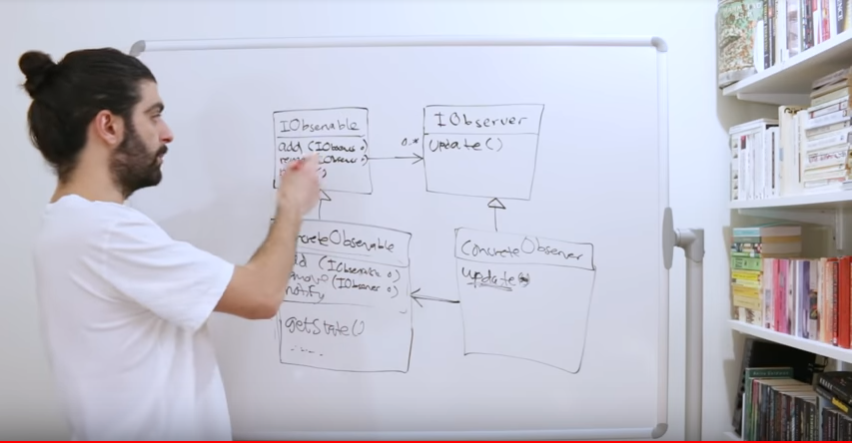 IObservable
add (IObserver o)
(IObserver o)
IObserver
update()
0..*
ConcreteObservable
add (IObserver o)
remove (IObserver o)
notify
getState()
ConcreteObserver
update()